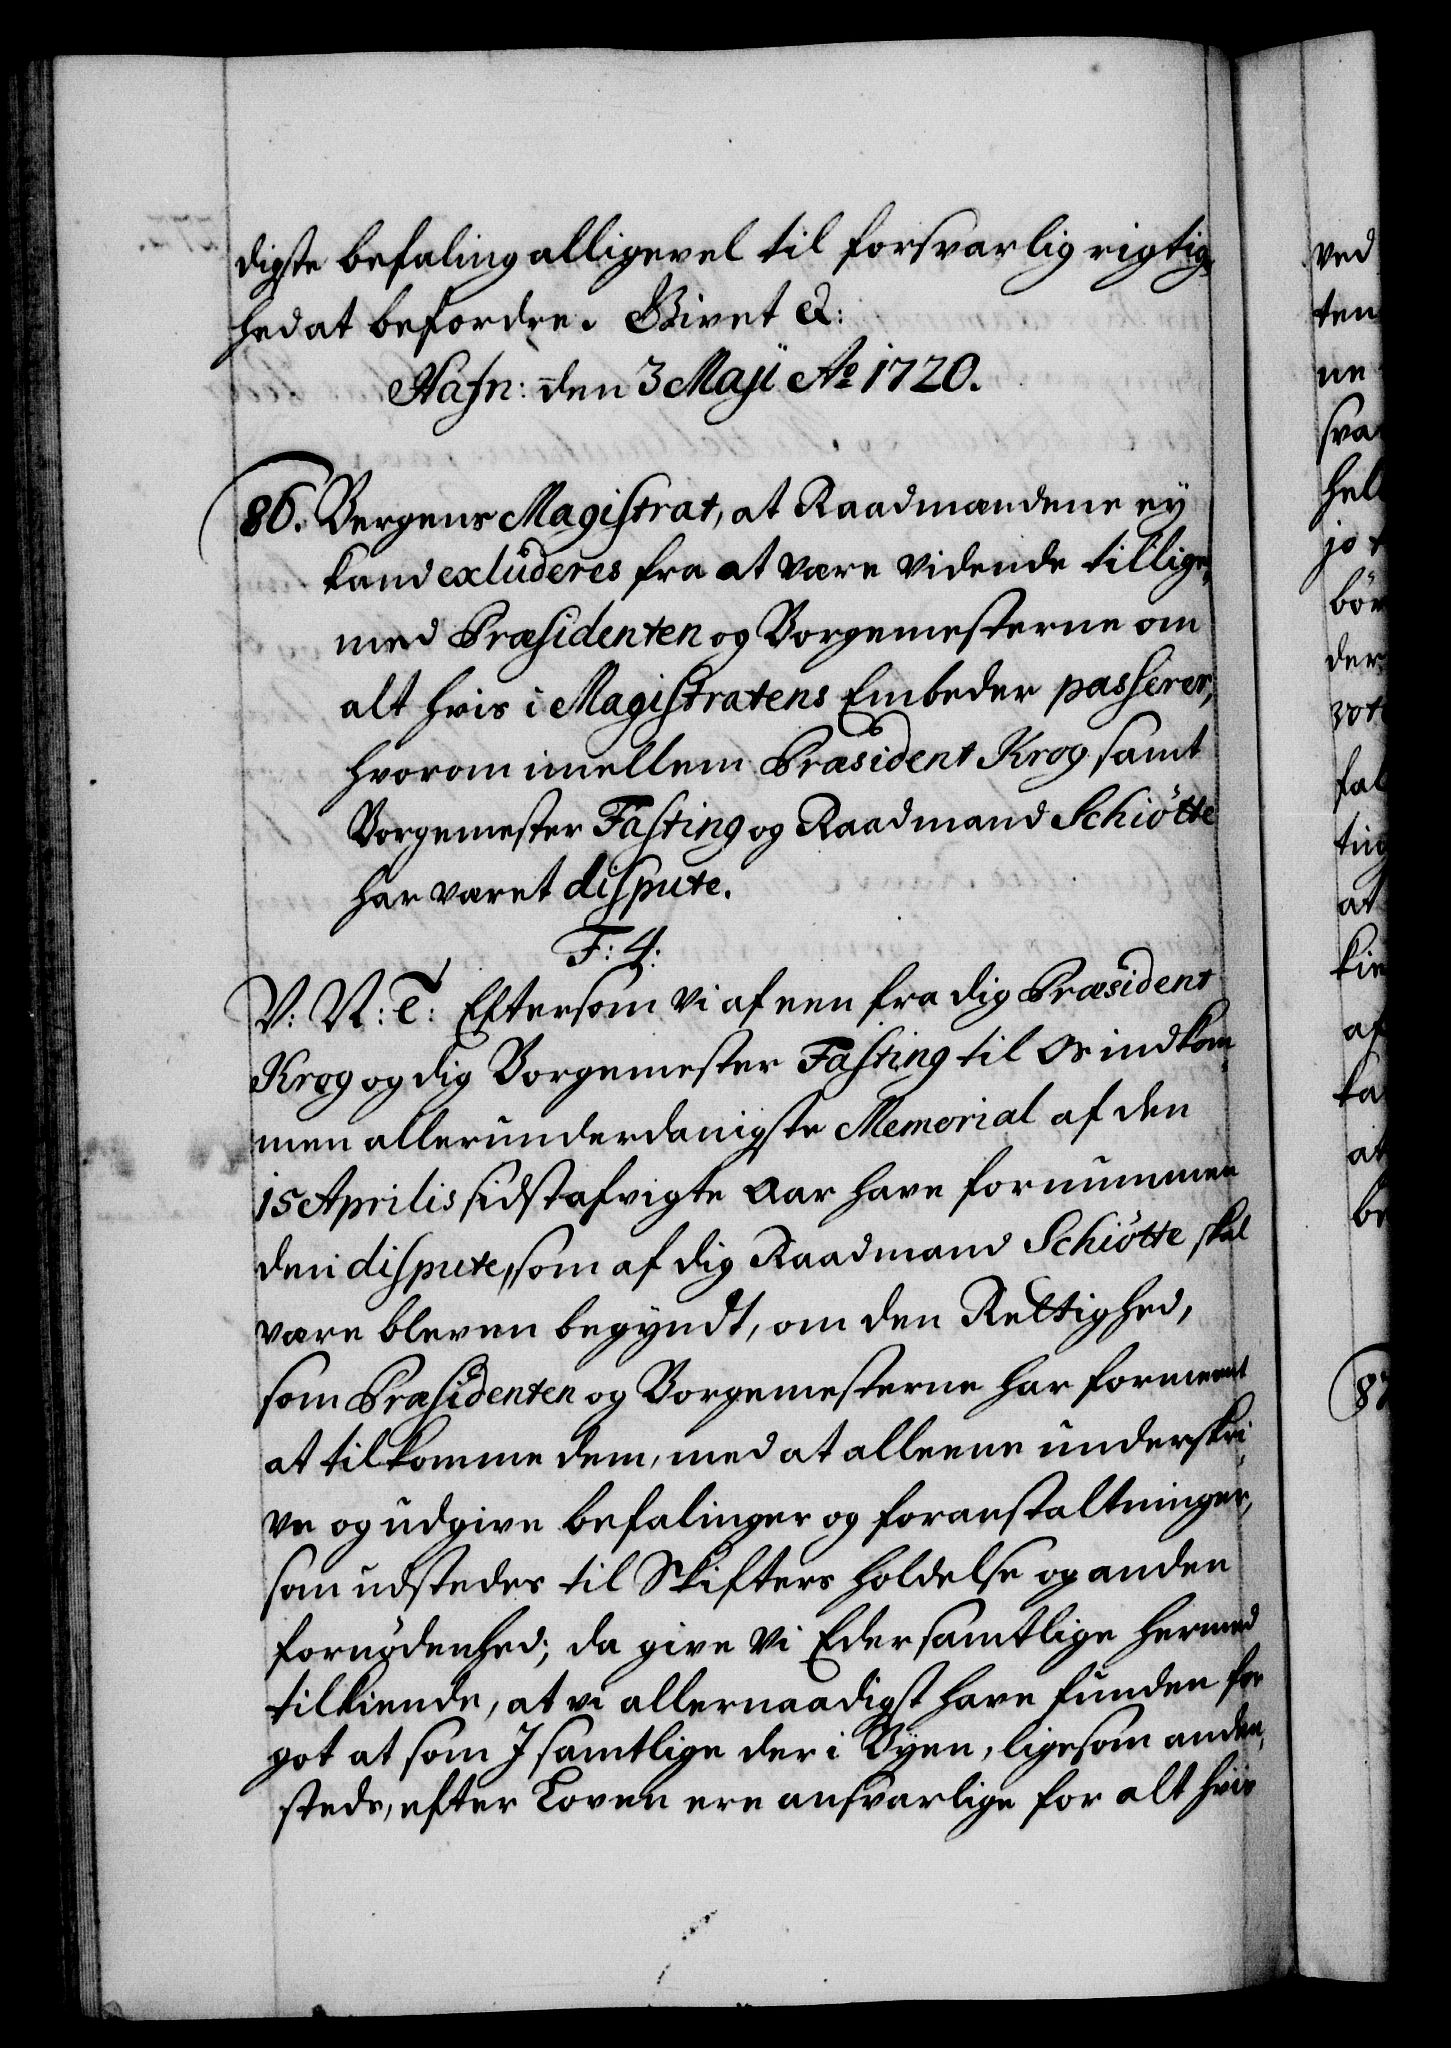 digste befaling alligevel til forsvarlig rigtig,
hed at befordre. Givet &:
Hafn: den 3 Maji Ao 1720.
86. Bergens Magistrat, at Raadmændene ey
kand exluderes fra at være vidende tillige,
med Præsidenten og Borgemesterne om
alt hvis i Magistratens Embeder passerer,
hvorom imellem Præsident Krog samt
Borgemester Fasting og Raadmand Schiötte
har været dispute.
F: 4:
V: N: T: Eftersom Vi af een fra dig Præsident
Krog og dig Borgemester Fasting til Os indkom,
men allerunderdanigste Memorial af den
15 Aprilis sidstafvigte Aar have fornummen
den dispute, som af dig Raadmand Schiötte skal
være bleven begyndt, om den Rettighed,
som Præsidenten og Borgemesterne har formeent
at tilkomme dem, med at alleene underskri,
ve og udgive befalinger og foranstaltninger,
som udstedes til Skifters holdelse og anden
fornødenhed; da give Vi Eder samtlige hermed
tilkiende, at vi allernaadigst have funden for
got at som I samtlige der i Byen, ligesom anden,
steds, efter Loven ere ansvarlige for alt hvis
ved
ten
ne
sva
hel
jo
bör
der
fal
ting
at
kie
af
ka
at
be
87